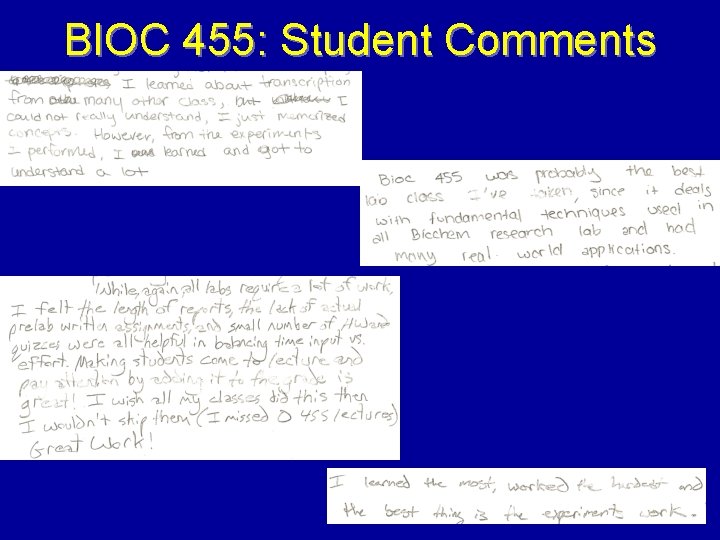 BIOC 455: Student Comments
I learned about transcription
from many other class, but I
could not really understand, I just memorized
concepts. However, from the experiments
I performed, I learned and got to
understand a lot
Bioc 455 was probably the best
lab class I've taken, since it deals
with fundamental techniques used in
all Biochem research lab and had
many real world applications.
While, again, all labs require a lot of work,
I felt the length of reports, the lack of actual
prelab written assignments, and small number of HW and
quizzes were all helpful in balancing time input vs.
effort. Making students come to lecture and
pay attention by adding it to the grade is
great! I wish all my classes did this then
I wouldn't skip them (I missed 0 455 lectures)
Great Work!
I learned the most, worked the hardest and
the best thing is the experiments work.